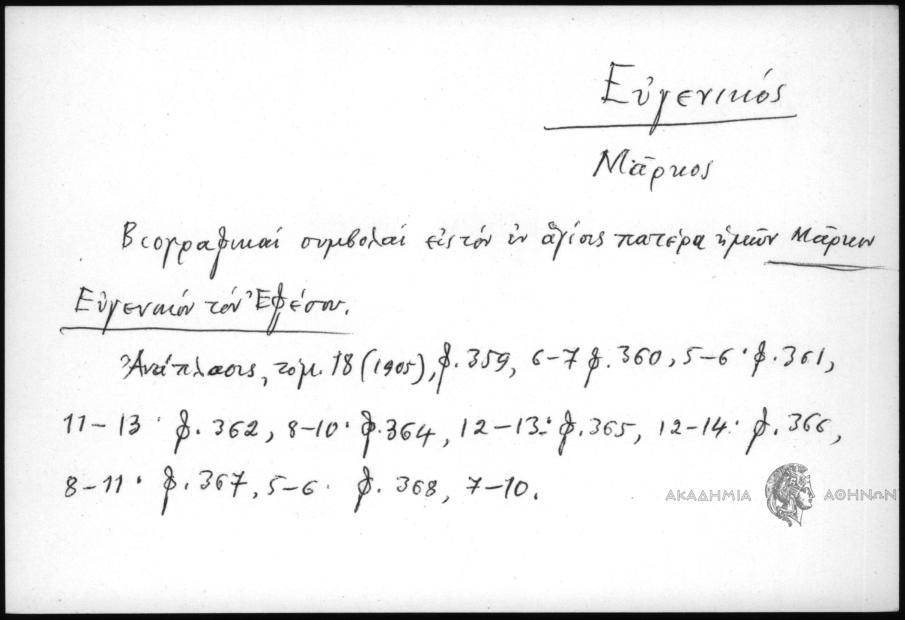 Εὐγενικός
Μᾶρκος
Βιογραφικαί συμβολαί εἰς τόν ἐν ἁγίοις πατέρα ἡμῶν Μᾶρκον
Εὐγενικόν τόν Ἐφέσου.
Ἀνάπλασις, τόμ. 18 (1905), φ. 359, 6-7 φ. 360, 5-6· φ. 361,
11-13· φ. 362, 8-10· φ. 364, 12-13· φ. 365, 12-14· φ. 366,
8-11· φ. 367, 5-6· φ. 368, 7-10.
ΑΚΑΔΗΜΙΑ ΑΘΗΝΩΝ